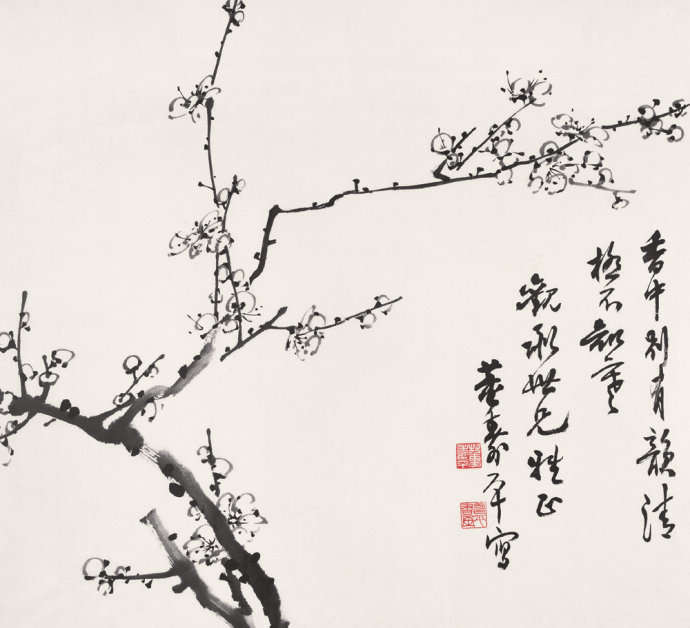 香中别有韻清
極不知寒
觀承世兄雅正
董壽平寫